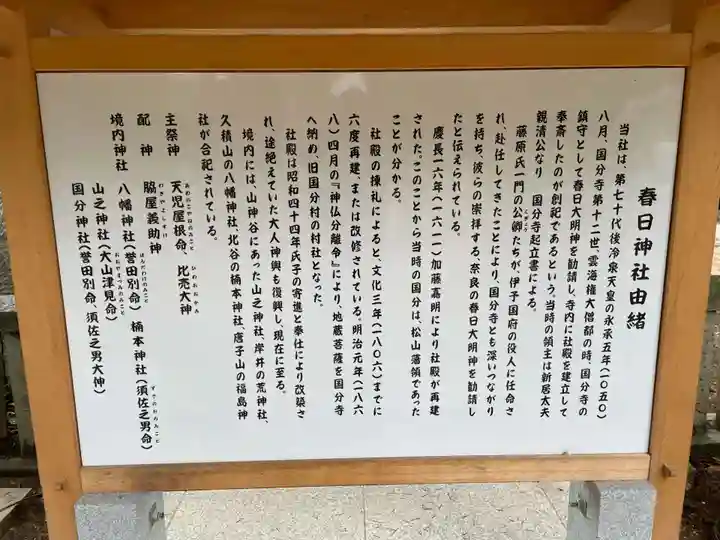 春日神社由緒
当社は、第七十代後冷泉天皇の永承五年(一〇五〇)
八月、国分寺第十二世、雲海権大僧都の時、国分寺の
鎮守として春日大明神を勧請し、寺内に社殿を建立して
奉斎したのが創祀であるという。当時の領主は新居太夫
親清公なり 国分寺起立書による。
藤原氏一門の公卿たちが、伊予国府の役人に任命さ
れ、赴任してきたことにより、国分寺とも深いつながり
を持ち、彼らの崇拝する、奈良の春日大明神を勧請し
たと伝えられている。
慶長一六年(一六一一)加藤嘉明により社殿が再建
された。このことから当時の国分は、松山藩領であった
ことが分かる。
社殿の棟札によると、文化三年(一八〇六)までに
六度再建、または改修されている。明治元年(一八六
八)四月の『神仏分離令』により、地蔵菩薩を国分寺
へ納め、旧国分村の村社となった。
社殿は昭和四十四年氏子の寄進と奉仕により改築さ
れ、途絶えていた大人神輿も復興し、現在に至る。
境内には、山神谷にあった山之神社、岸井の荒神社、
久積山の八幡神社、北谷の楠本神社、唐子山の福島神
社が合祀されている。
主祭神 天児屋根命 比売大神
配神 脇屋義助神
境内神社 八幡神社(誉田別命) 楠本神社(須佐之男命)
山之神社(大山津見命)
国分神社(誉田別命、須佐之男大神)